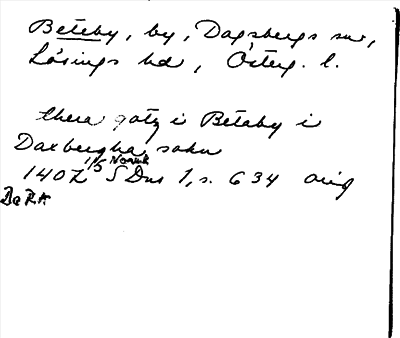 Beteby, by, Dagsbergs sn,
Lösings hd, Österg. l.
thera gotz i Beteby i
Daxbergha sokn
1402 1/5 Norrk SDns 1, s. 634 orig
DaRA